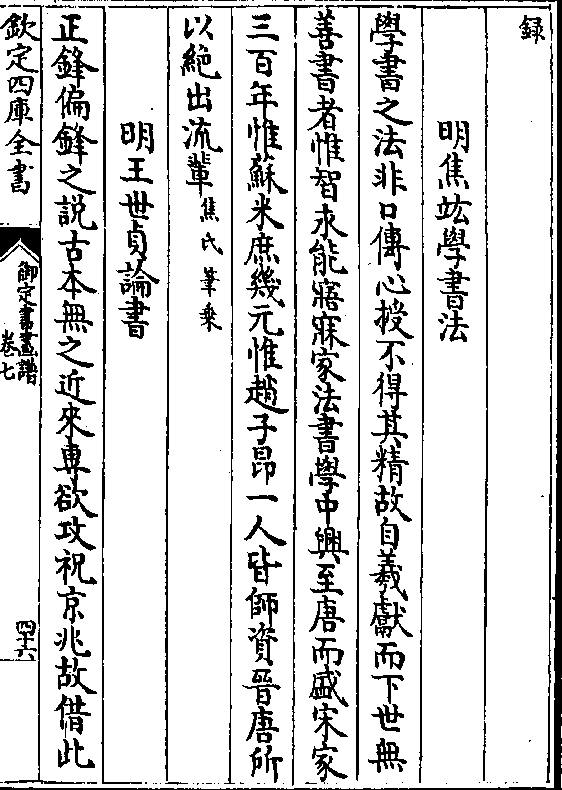 録
明焦竑學書法
學書之法非口傳心授不得其精故自羲獻而下世無
善書者惟智永能寤寐家法書學中興至唐而盛宋家
三百年惟蘇米庶幾元惟趙子昂一人皆師資晉唐所
以絶出流輩焦氏筆乗
明王世貞論書
正鋒偏鋒之説古本無之近來専欲攻祝京兆故借此
欽定四庫全書
御定書畫譜
卷七
四十六